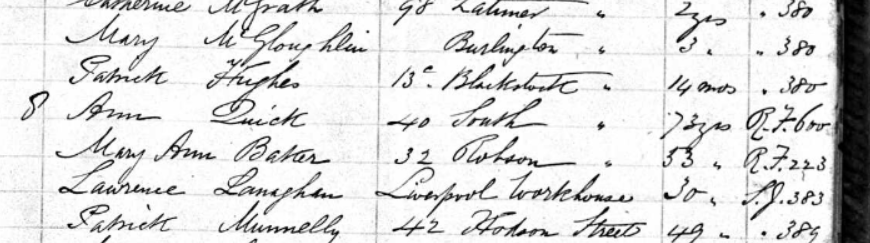 Catherine McGrath 98 Latimer " 2 yrs . 380
Mary McGloughlin Burlington " 3 " " 380
Patrick Hughes 13c. Blackstock " 14 mos . 380
8 Ann Quick 40 South " 73 yrs R.F. 600
Mary Ann Baker 32 Robson " 53 " R.F. 223
Lawrence Lanaghan Liverpool Workhouse 30 " S.J. 383
Patrick Munnelly 42 Hodson Street 49 " . 389